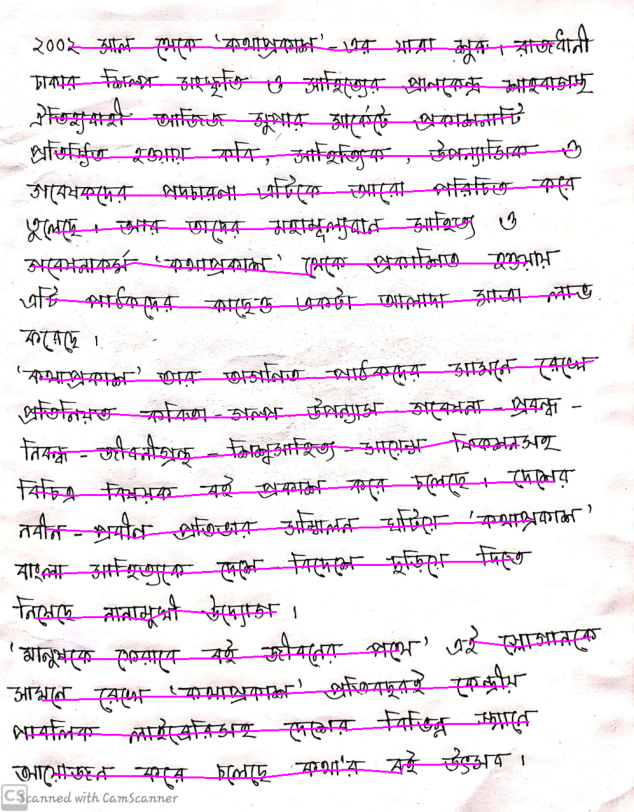 ২০০২ সাল থেকে 'কথাপ্রকাশ'-এর যাত্রা শুরু। রাজধানী
ঢাকার শিল্প সংস্কৃতি ও সাহিত্যের প্রাণকেন্দ্র শাহবাগস্থ
ঐতিহ্যবাহী আজিজ সুপার মার্কেটে প্রকাশনাটি
প্রতিষ্ঠিত হওয়ায় কবি, সাহিত্যিক, ঔপন্যাসিক ও
গবেষকদের পদচারণা এটিকে আরো পরিচিত করে
তুলেছে। আর তাদের মহামূল্যবান সাহিত্য ও
গবেষণাকর্ম 'কথাপ্রকাশ' থেকে প্রকাশিত হওয়ায়
এটি পাঠকদের কাছেও একটা আলাদা মাত্রা লাভ
করেছে।
'কথাপ্রকাশ' তার অগণিত পাঠকদের সামনে রেখে
প্রতিনিয়ত কবিতা-গল্প উপন্যাস গবেষণা-প্রবন্ধ-
নিবন্ধ-জীবনীগ্রন্থ-শিশুসাহিত্য-সায়েন্স ফিকশনসহ
বিচিত্র বিষয়ক বই প্রকাশ করে চলেছে। দেশের
নবীন-প্রবীন প্রতিভার সম্মিলন ঘটিয়ে 'কথাপ্রকাশ'
বাংলা সাহিত্যকে দেশে-বিদেশে ছড়িয়ে দিতে
নিয়েছে নানামুখী উদ্যোগ।
'মানুষকে ফেরাবে বই জীবনের পথে' এই স্লোগানকে
সামনে রেখে 'কথাপ্রকাশ' প্রতিবছরই কেন্দ্রীয়
পাবলিক লাইব্রেরিসহ দেশের বিভিন্ন স্থানে
আয়োজন করে চলেছে কথা'র বই উৎসব।
CS Scanned with CamScanner